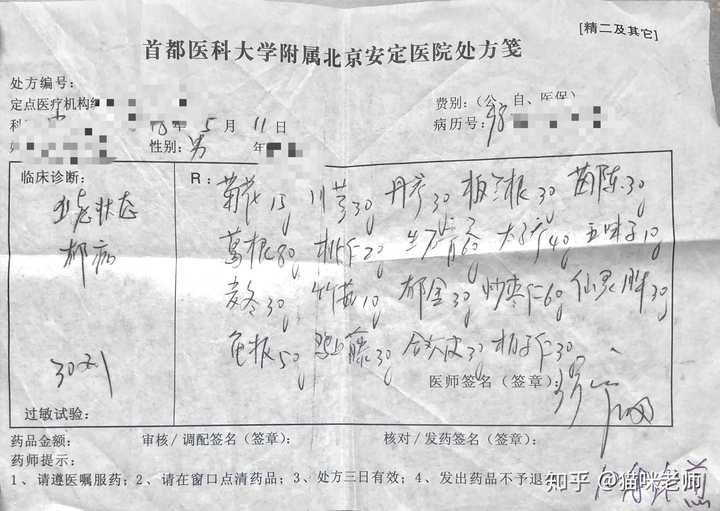 [精二及其它]
首都医科大学附属北京安定医院处方笺
处方编号：
定点医疗机构
费别：（公 自、医保）
年 5 月 11 日
病历号：
性别：男 年
临床诊断：
R：
菊花15g 川芎30g 丹参30g 板兰根30g 茵陈30g
状态
郁病
葛根80g 桃仁20g 太子参40g 五味子10g
麦冬30g 竹茹10g 郁金30g 炒枣仁60g 仙灵脾30g
龟板50g 鸡血藤30g 合欢皮30g 柏子仁30g
30剂
医师签名（签章）：
过敏试验：
药品金额： 审核/调配签名（签章）： 核对/发药签名（签章）：
药师提示：
1、请遵医嘱服药；2、请在窗口点清药品；3、处方三日有效；4、发出药品不予退
知乎 @猫咪老师